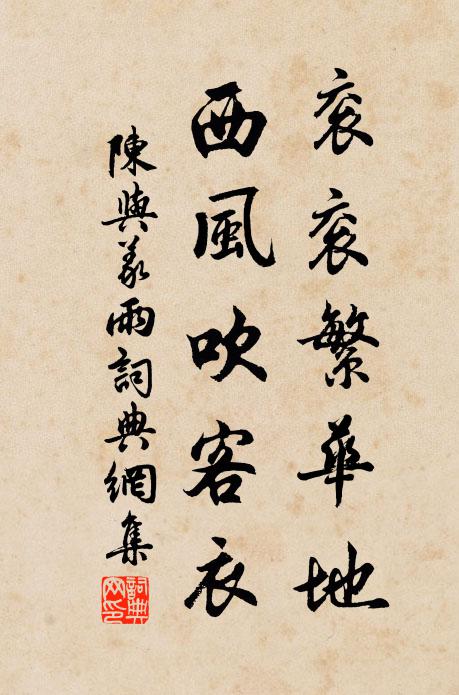 衮衮繁華地
西風吹客衣
陳與義雨詞典網集
詞典網印